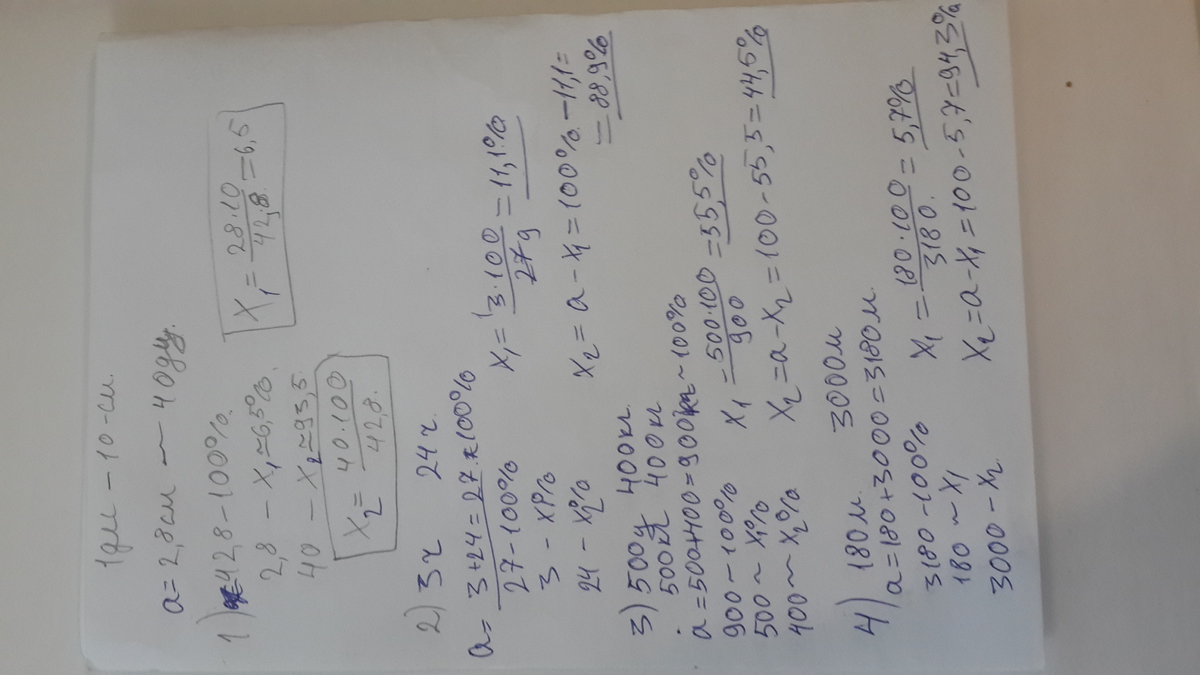 1дм - 10 - см.
a = 2,8 см — 40дм.
1) 42,8 - 100%.
2,8 - x₁ ≈ 6,5%.
40 - x₂ ≈ 93,5.
x₂ = 40·100/42,8.
x₁ = 28·10/42,8. = 6,5
2) 3ч 24ч
a = 3+24 = 27. ~100%
27 - 100%
3 - x₁%
24 - x₂%
x₁ = 3·100/27 = 11,1%
x₂ = a - x₁ = 100% - 11,1 =
= 88,9%
3) 500 400кг.
500кг 400кг
a = 500+400 = 900кг ~ 100%
900 - 100%
500 ~ x₁%
400 ~ x₂%
x₁ - 500·100/900 = 55,5%
x₂ = a - x₂ = 100 - 55,5 = 44,5%
4) 180м. 3000м
a = 180+3000 = 3180м.
3180 - 100%
180 ~ x₁
3000 - x₂.
x₁ = 180·100/3180. = 5,7%
x₂ = a - x₁ = 100 - 5,7 = 94,3%